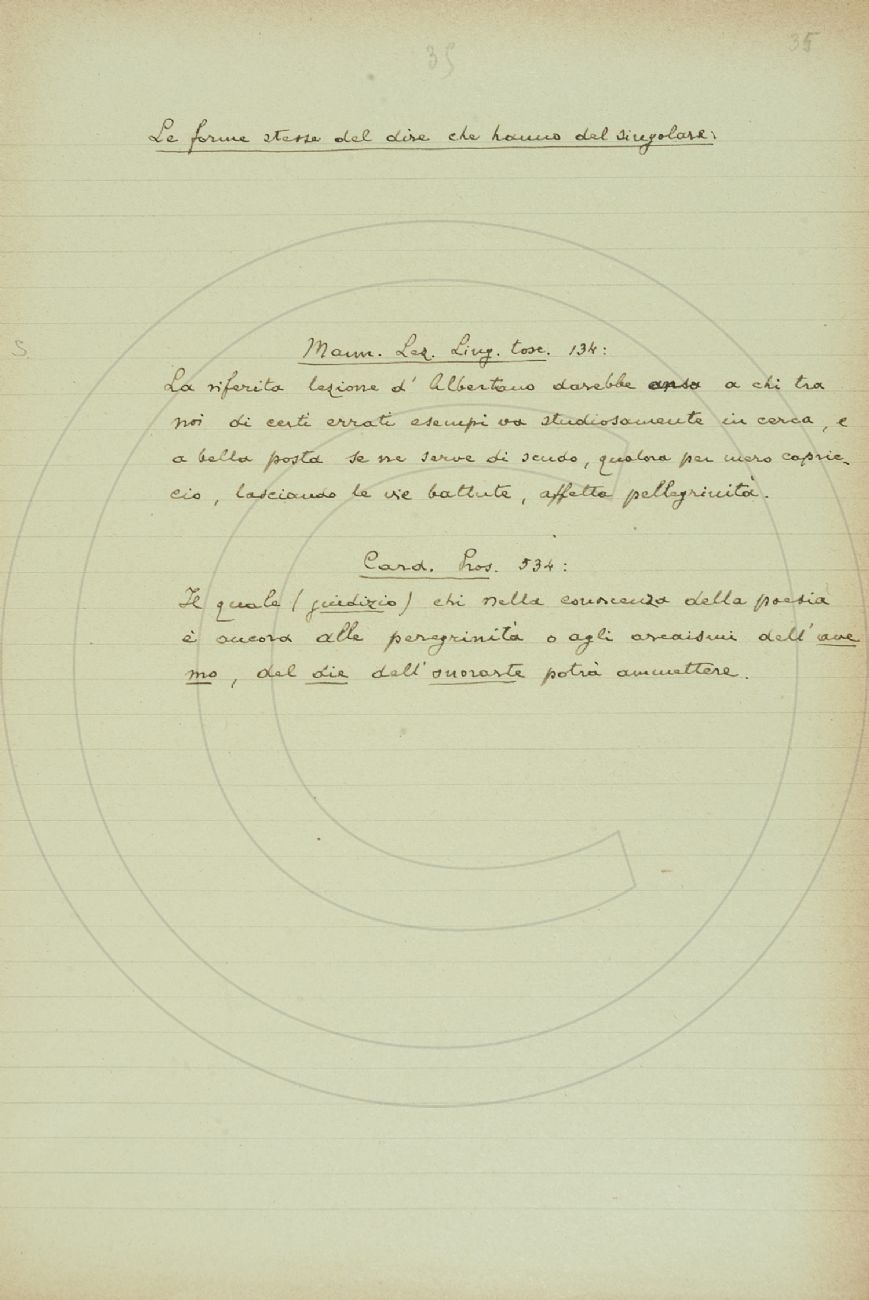 35 35
Le forme stesse del dire che hanno del singolare:
S.
Mann. Lez. Ling. tosc. 134:
La riferita lezione d' Albertano darebbe ansa a chi tra
noi di certi errati esempi va studiosamente in cerca, e
a bella posta se ne serve di scudo, qualora per mero capric-
cio, lasciando le vie battute, affetta pellegrinità.
Card. Pros. 534:
Il quale (giudizio) chi nella conoscenza della poesia
è ancora alle peregrinità o agli arcaismi dell' ave
mo, del die dell' onoraste potrà ammettere.